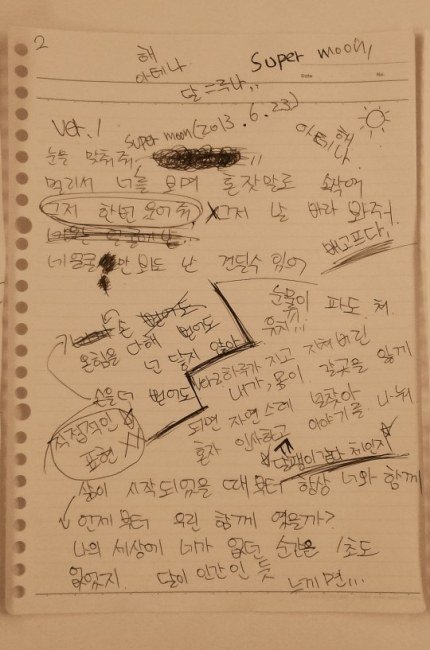 2
해
아테나
Super moon,
달 = 루나..
Date No.
Ver. 1
Super moon (2013. 6. 23)
아테나 해
눈을 맞춰줘
멀리서 너를 보며 혼잣말로 속삭여
그저 한번 웃어줘 X그저 날 바라 봐줘.
배고프다,
네 얼굴만 봐도 난 견딜 수 있어
손 뻗어도 뻗어도
온힘을 다해
닿지 않아
손을 더 뻗어도
직접적인
표현
눈물이 파도 쳐.
하루가 지고 지쳐버린
내가, 몸이 갈곳을 잃게
되면 자연스레 널 찾아
혼자 인사하고 이야기를 나눠
삶이 시작되었을 때부터 항상 너와 함께
언제부터 우린 함께 였을까?
나의 세상에 네가 없던 순간은 1초도
없었지. 달이 인간인 듯
느끼면...